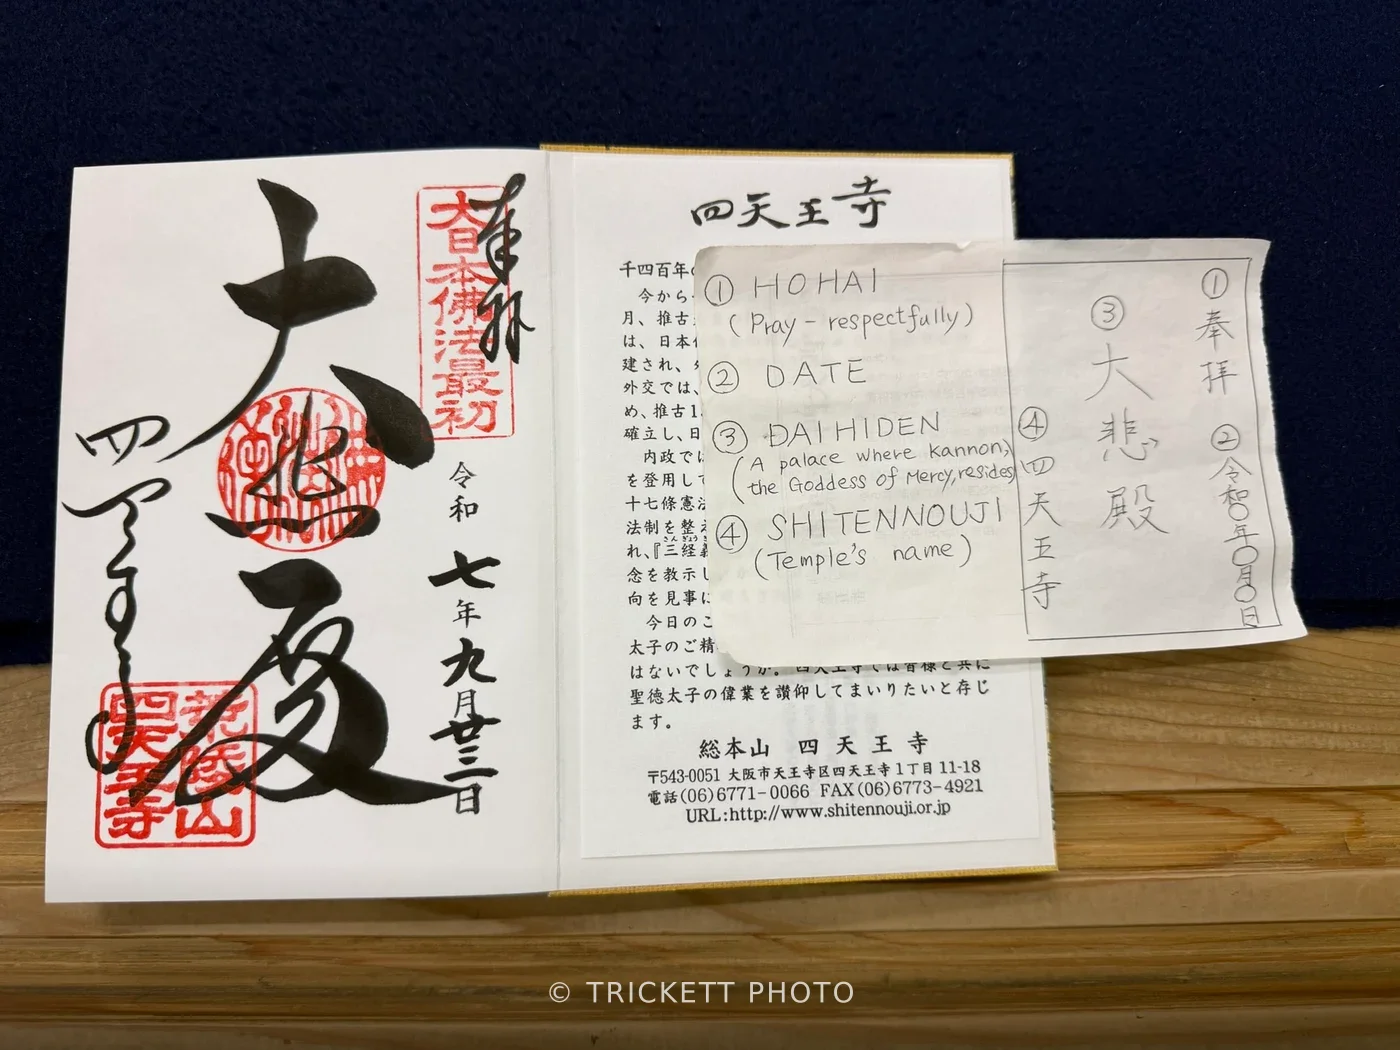 奉拝
大日本佛法最初
令和
七年九月廿三日
大悲殿
四天王寺
荒陵山
四天王寺
四天王寺
千四百年
今から
月、推古
は、日本
建され、
外交では、
め、推古1
確立し、日
内政で
を登用して
十七條憲法
法制を整え
れ、『三経義
念を教示し
向を見事に
今日のこ
太子のご精
はないでしょうか。四天王寺では皆様と共に
聖徳太子の偉業を讃仰してまいりたいと存じ
ます。
総本山 四天王寺
〒543-0051 大阪市天王寺区四天王寺1丁目11-18
電話(06)6771-0066 FAX(06)6773-4921
URL:http://www.shitennouji.or.jp
① HOHAI
(Pray - respectfully)
② DATE
③ DAIHIDEN
(A palace where Kannon,
the Goddess of Mercy, resides)
④ SHITENNOUJI
(Temple's name)
① 奉拝
② 令和〇年〇月〇日
③ 大悲殿
④ 四天王寺
© TRICKETT PHOTO